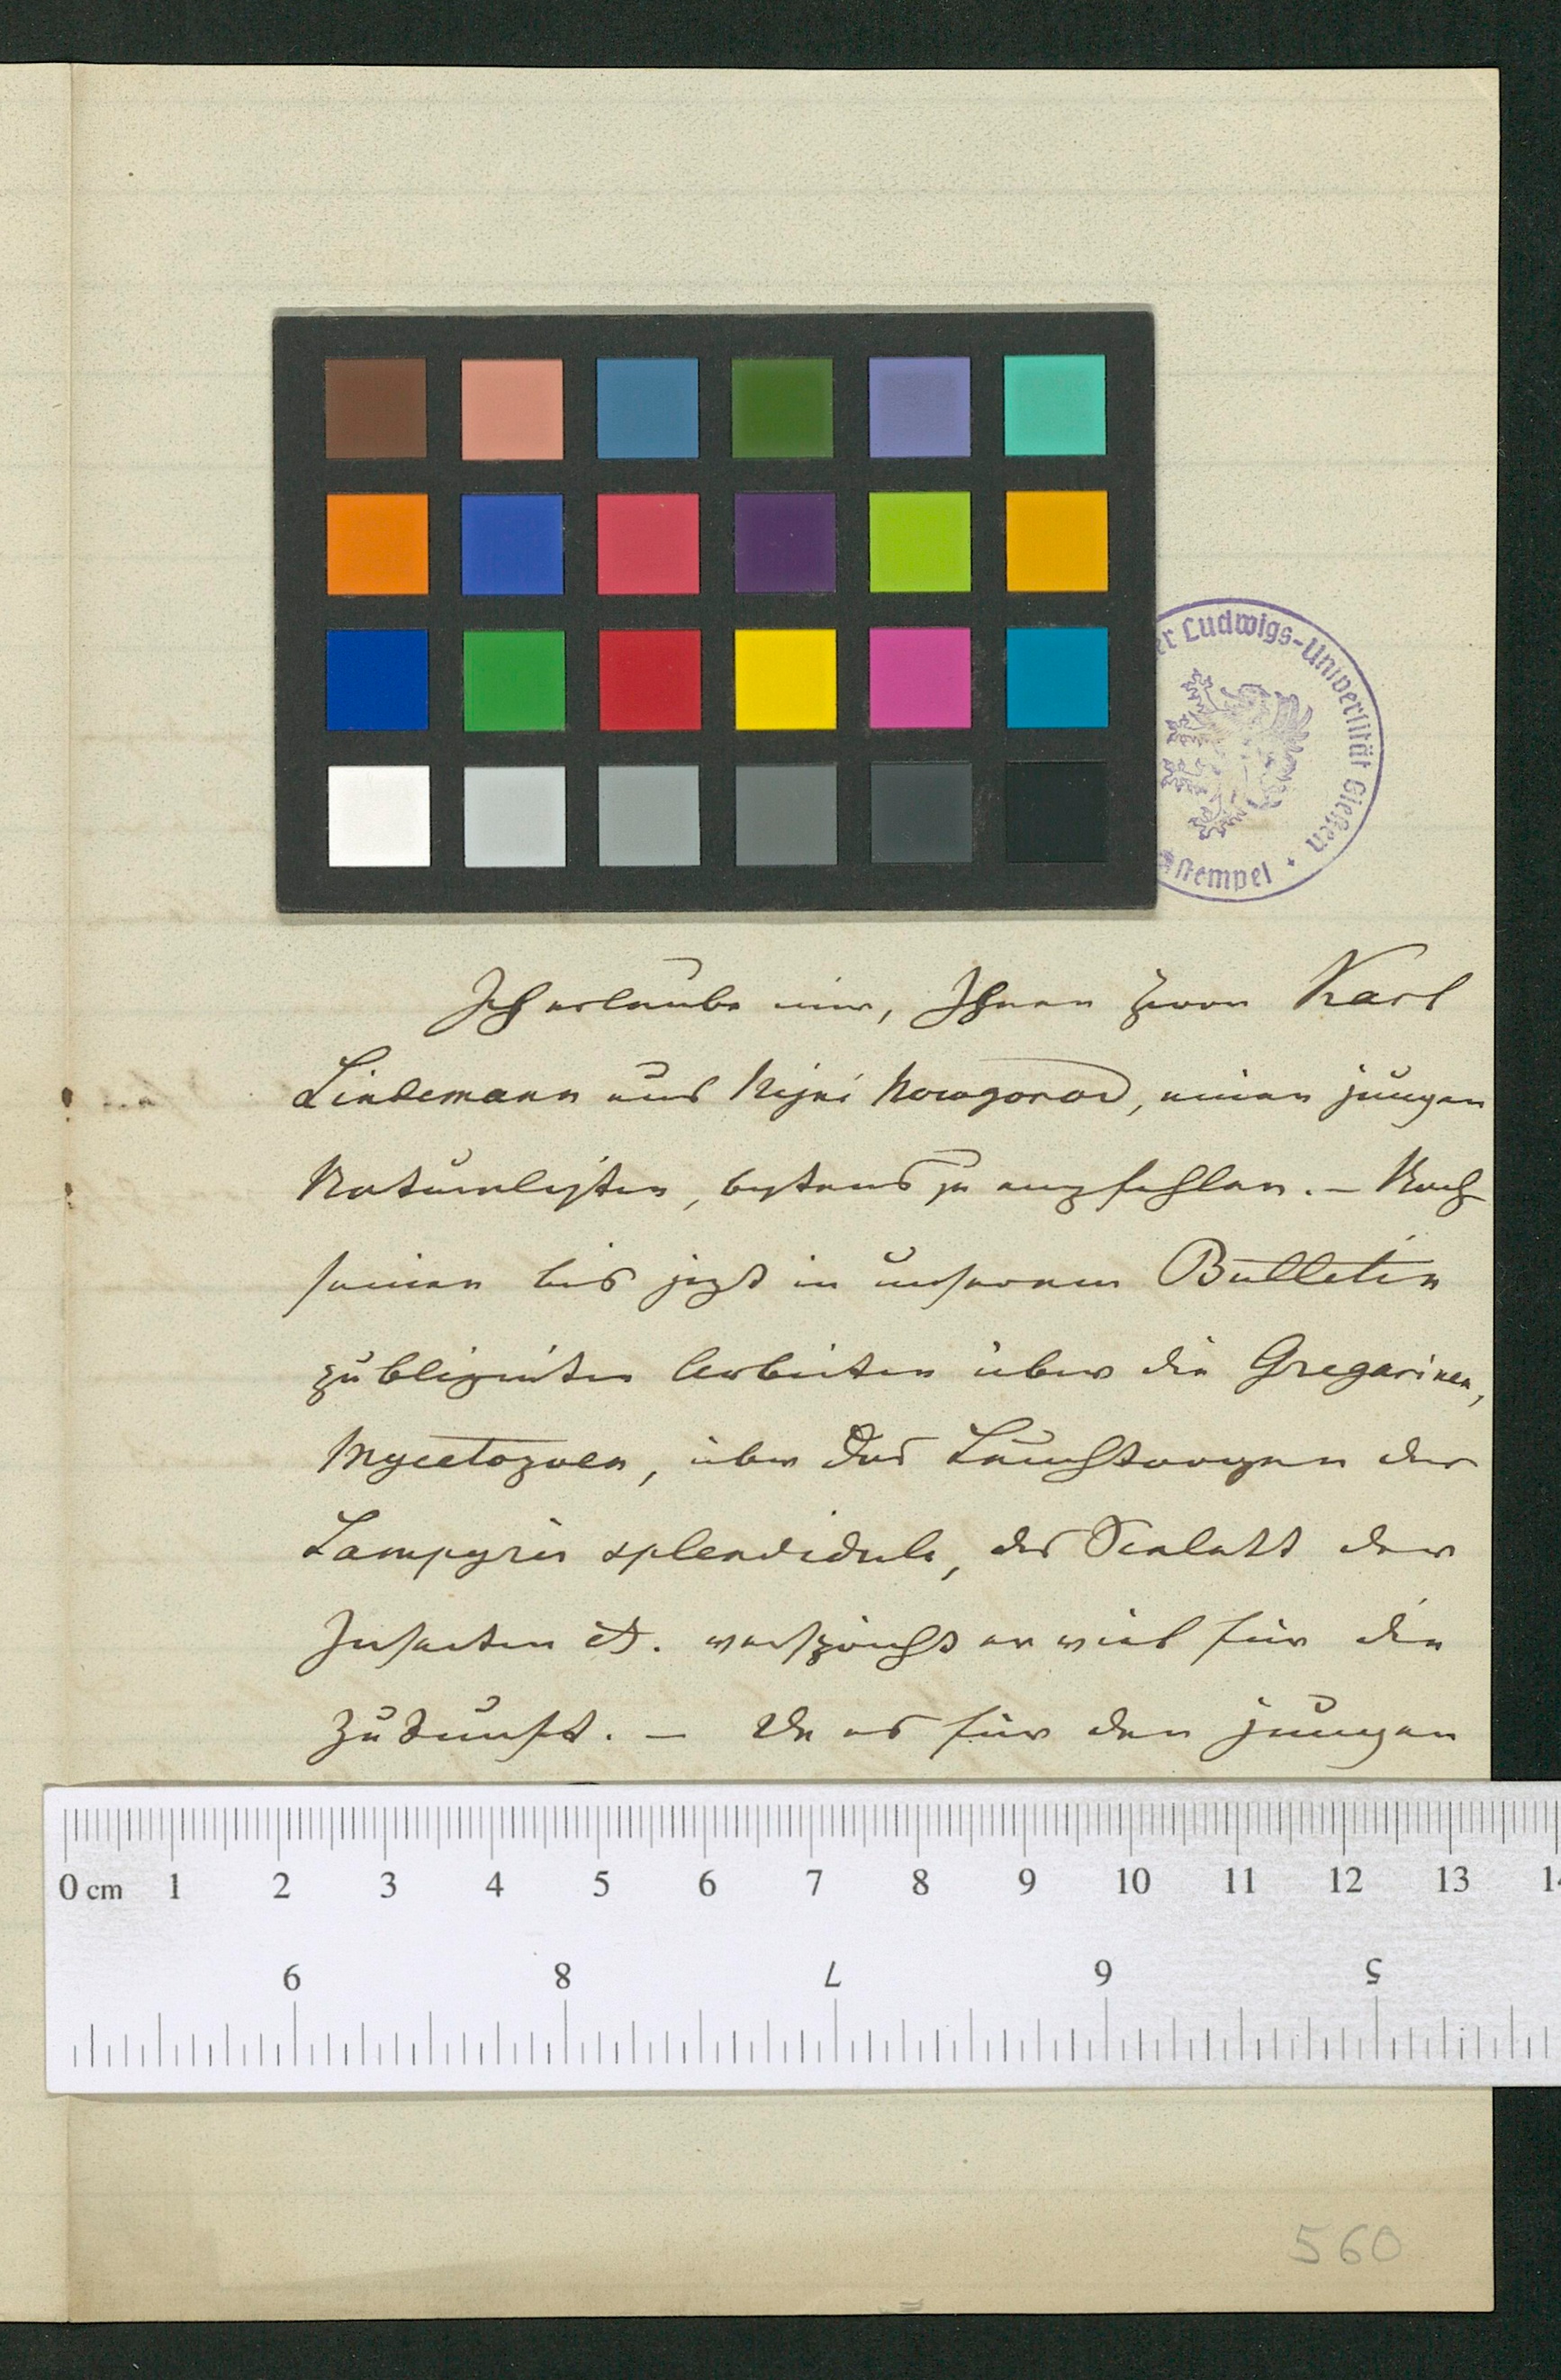 er Ludwigs-Universität Gießen
stempel
Ich erlaube mir, Ihnen Herrn Karl
Lindemann aus Nijni Nowgorod, einen jungen
Naturalisten, bestens zu empfehlen. – Nach
seinen bis jezt in unserem Bulletin
publizirten Arbeiten über die Gregarinen,
Mycetozoen, über das Leuchtorgan der
Lampyris splendidula, das Skelett der
Insecten etc. verspricht er viel für die
Zukunft. – Da es für den jungen
0 cm 1 2 3 4 5 6 7 8 9 10 11 12 13 14
9 8 7 6 5
560